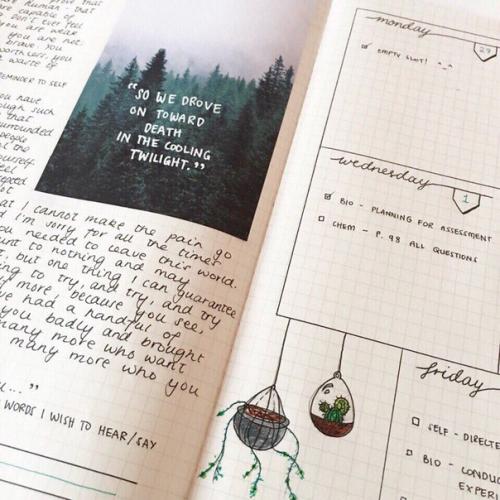 prove that
are human - that
are capable of
Don't ever feel
you are weak
you are not.
brave. You
worthless, you
waste of
REMINDER TO SELF
you have
rough such
that
surrounded
people
of the
yourself.
feel
"SO WE DROVE
ON TOWARD
DEATH
IN THE COOLING
TWILIGHT."
at I cannot make the pain go
d I'm sorry for all the times
you needed to leave this world.
unt to nothing and may
t, but one thing I can guarantee
ing to try, and try, and try
more, because you see,
ve had a handful of
you badly and brought
many more who want
many more who you
..."
WORDS I WISH TO HEAR/SAY
monday
29
EMPTY SLOT! ^_^
wednesday
1
BIO - PLANNING FOR ASSESSMENT
CHEM - P. 98 ALL QUESTIONS
friday
SELF - DIRECTE
BIO - CONDU
EXPERI